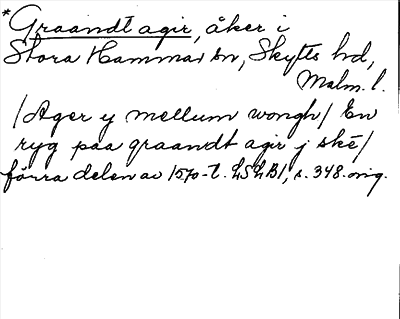 *Graandt agir, åker i
Stora Hammar sn, Skytts hd,
Malm. l.
/Ager y mellum wongh/ En
ryg paa graandt agir j skē/
förra delen av 1570-t. LSLB1, s. 348. orig.